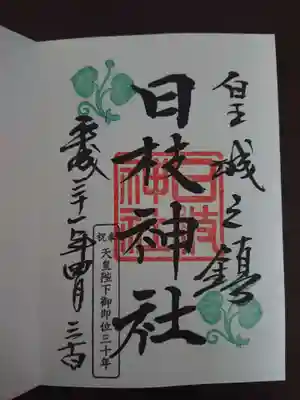 皇城之鎮
日枝神社
日枝神社
奉祝 天皇陛下御即位三十年
平成三十一年四月三十日